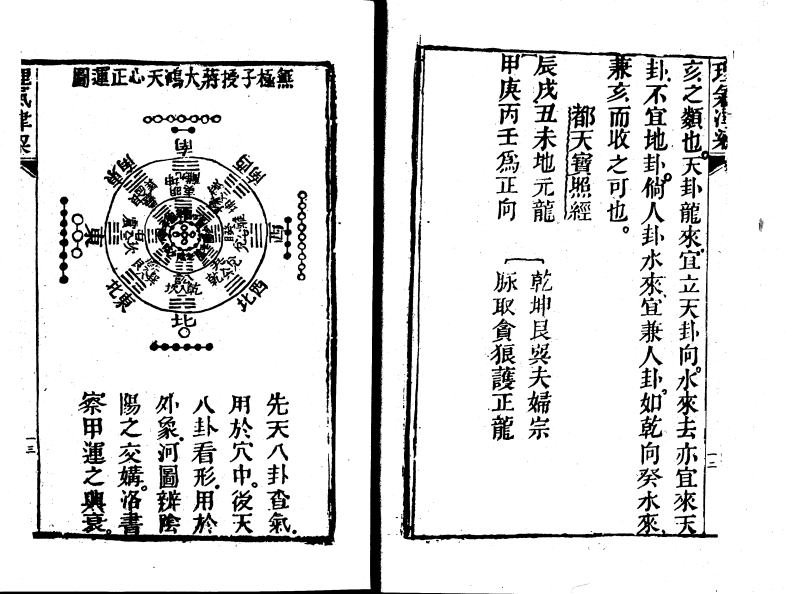 理氣津梁
亥之類也。天卦龍來。宜立天卦向。水來去亦宜來天
卦。不宜地卦。倘人卦水來。宜兼人卦。如乾向癸水來。
兼亥而收之可也。
都天寶照經
辰戌丑未地元龍
乾坤艮巽夫婦宗
甲庚丙壬為正向
脉取貪狼護正龍
一二
無極子授蔣大鴻天心正運圖
南
西南
西
西北
北
東北
東
東南
先天八卦查氣。
用於穴中。後天
八卦看形。用於
外象。河圖辨陰
陽之交媾。洛書
察甲運之興衰。
理氣津梁
一三